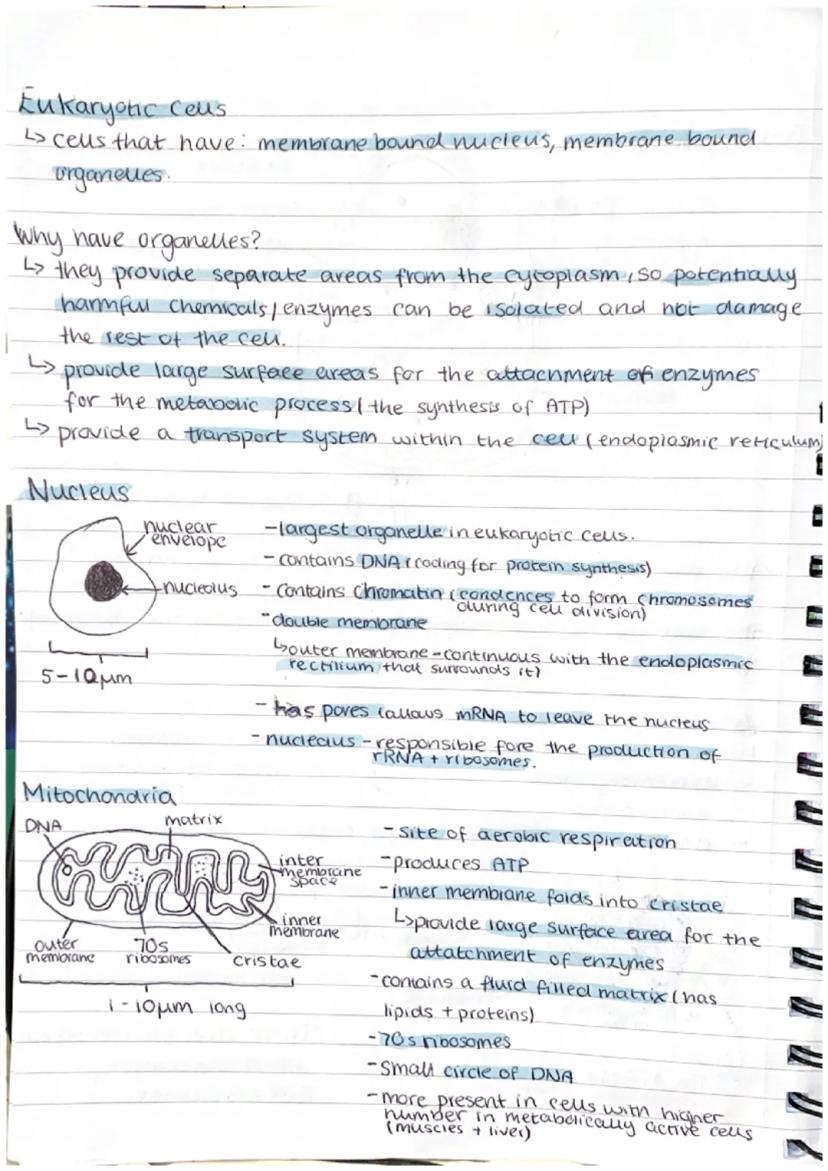 Eukaryotic cells
↳ cells that have: membrane bound nucleus, membrane bound
organelles.
Why have organelles?
↳ they provide separate areas from the cytoplasm, so potentially
harmful chemicals/enzymes can be isolated and not damage
the rest of the cell.
↳ provide large surface areas for the attachment of enzymes
for the metabolic process (the synthesis of ATP)
↳ provide a transport system within the cell (endoplasmic reticulum)
Nucleus
nuclear
envelope
nucleolus
5-10µm
- largest organelle in eukaryotic cells.
- contains DNA (coding for protein synthesis)
- contains chromatin (condences to form chromosomes
during cell division)
- double membrane
↳ outer membrane - continuous with the endoplasmic
rectilium (that surrounds it)
- has pores (allows mRNA to leave the nucleus
- nucleolus - responsible fore the production of
rRNA + ribosomes.
Mitochondria
DNA
matrix
inter
membrane
space
inner
membrane
outer
membrane
70s
ribosomes
cristae
1-10µm long
- site of aerobic respiration
- produces ATP
- inner membrane folds into cristae
↳ provide large surface area for the
attatchment of enzymes
- contains a fluid filled matrix (has
lipids + proteins)
- 70s ribosomes
- small circle of DNA
- more present in cells with higher
number in metabolically active cells
(muscles + liver)